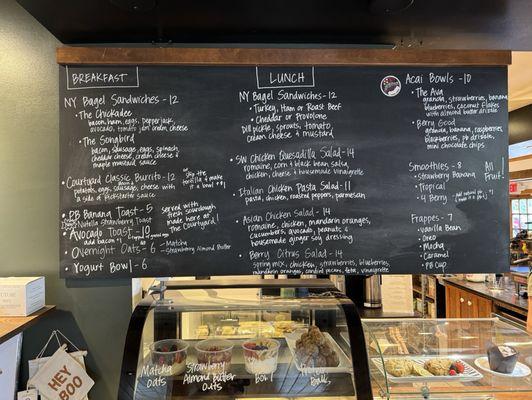 BREAKFAST
NY Bagel Sandwiches - 12
• The Chickadee
bacon, ham, eggs, pepperjack,
avocado, tomato jam cream cheese
• The Songbird
bacon, sausage, eggs, spinach,
cheddar cheese, cream cheese &
maple mustard sauce
Courtyard Classic Burrito - 12
potatoes, eggs, sausage, cheese with
a side of kickstarter sauce
skip the
tortilla & make
it a bowl
PB Banana Toast - 5
Nutella Strawberry Toast
AVOCADO TOAST - 10
add bacon
Served with
fresh sourdough
made here at
The Courtyard!
Overnight Oats - 6
- Matcha
- Strawberry Almond Butter
Yogurt Bowl - 6
LUNCH
NY Bagel Sandwiches - 12
• Turkey, Ham or Roast Beef
• Cheddar or Provolone
Dill pickle, sprouts, tomato
cream cheese & mustard
SW Chicken Quesadilla Salad - 14
romaine, corn & black bean, salsa,
chicken, cheese & housemade vinaigrette
Italian Chicken Pasta Salad - 11
pasta, chicken, roasted peppers, parmesan
Asian Chicken Salad - 14
romaine, chicken, mandarin oranges,
cucumbers, avocado, peanuts, &
housemade ginger soy dressing
Berry Citrus Salad - 14
spring mix, chicken, strawberries, blueberries,
mandarin oranges, candied pecans, feta, vinaigrette
Acai Bowls - 10
• The Ava
granola, strawberries, banana
blueberries, coconut flakes
with almond butter drizzle
• Berry Good
granola, banana, raspberries,
blueberries, pb drizzle,
mini chocolate chips
Smoothies - 8
• Strawberry Banana
• Tropical
• 4 Berry
All
Fruit!
Frappes - 7
• vanilla Bean
• Oreo
• Mocha
• Caramel
• PB Cup
Matcha
Oats
Strawberry
Almond Butter
Oats
Bowl
Protein
Balls
HEY
BOO